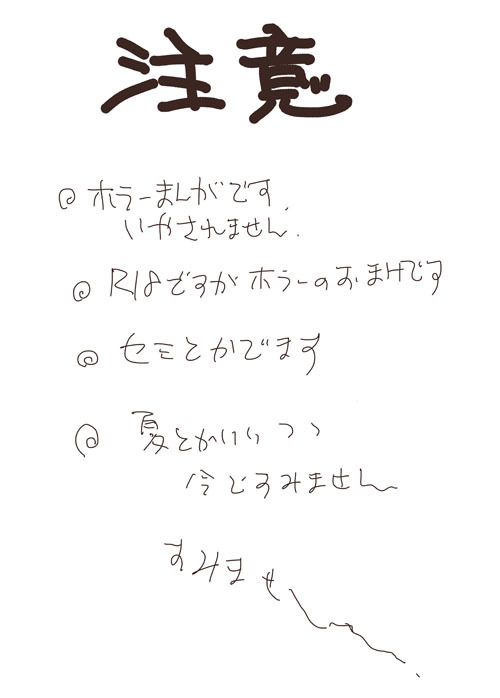 注意
◎ ホラーまんがです。
いやされません。
◎ R18ですがホラーのおまけです
◎ セミとかでます
◎ 夏とかいいつつ
今ですみません
すみませ